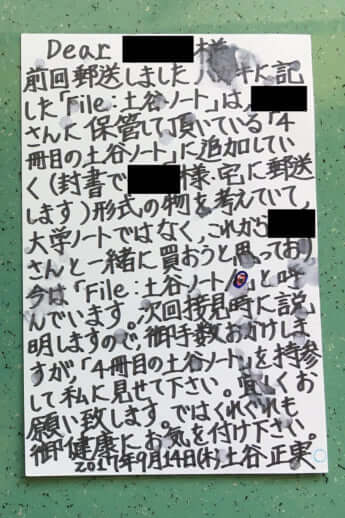 Dear 様
前回郵送しましたハガキに記
した「File:土谷ノート」は、
さんに保管して頂いている「4
冊目の土谷ノート」に追加してい
く(封書で 様宅に郵送
します)形式の物を考えていて、
大学ノートではなく、これから
さんと一緒に買おうと思っており
今は「File:土谷ノート」と呼
んでいます。次回接見時に説
明しますので、御手数おかけしま
すが、「4冊目の土谷ノート」を持参
して私に見せて下さい。宜しくお
願い致します。ではくれぐれも
御健康にお気を付け下さい。
2017年9月14日(木)土谷正実